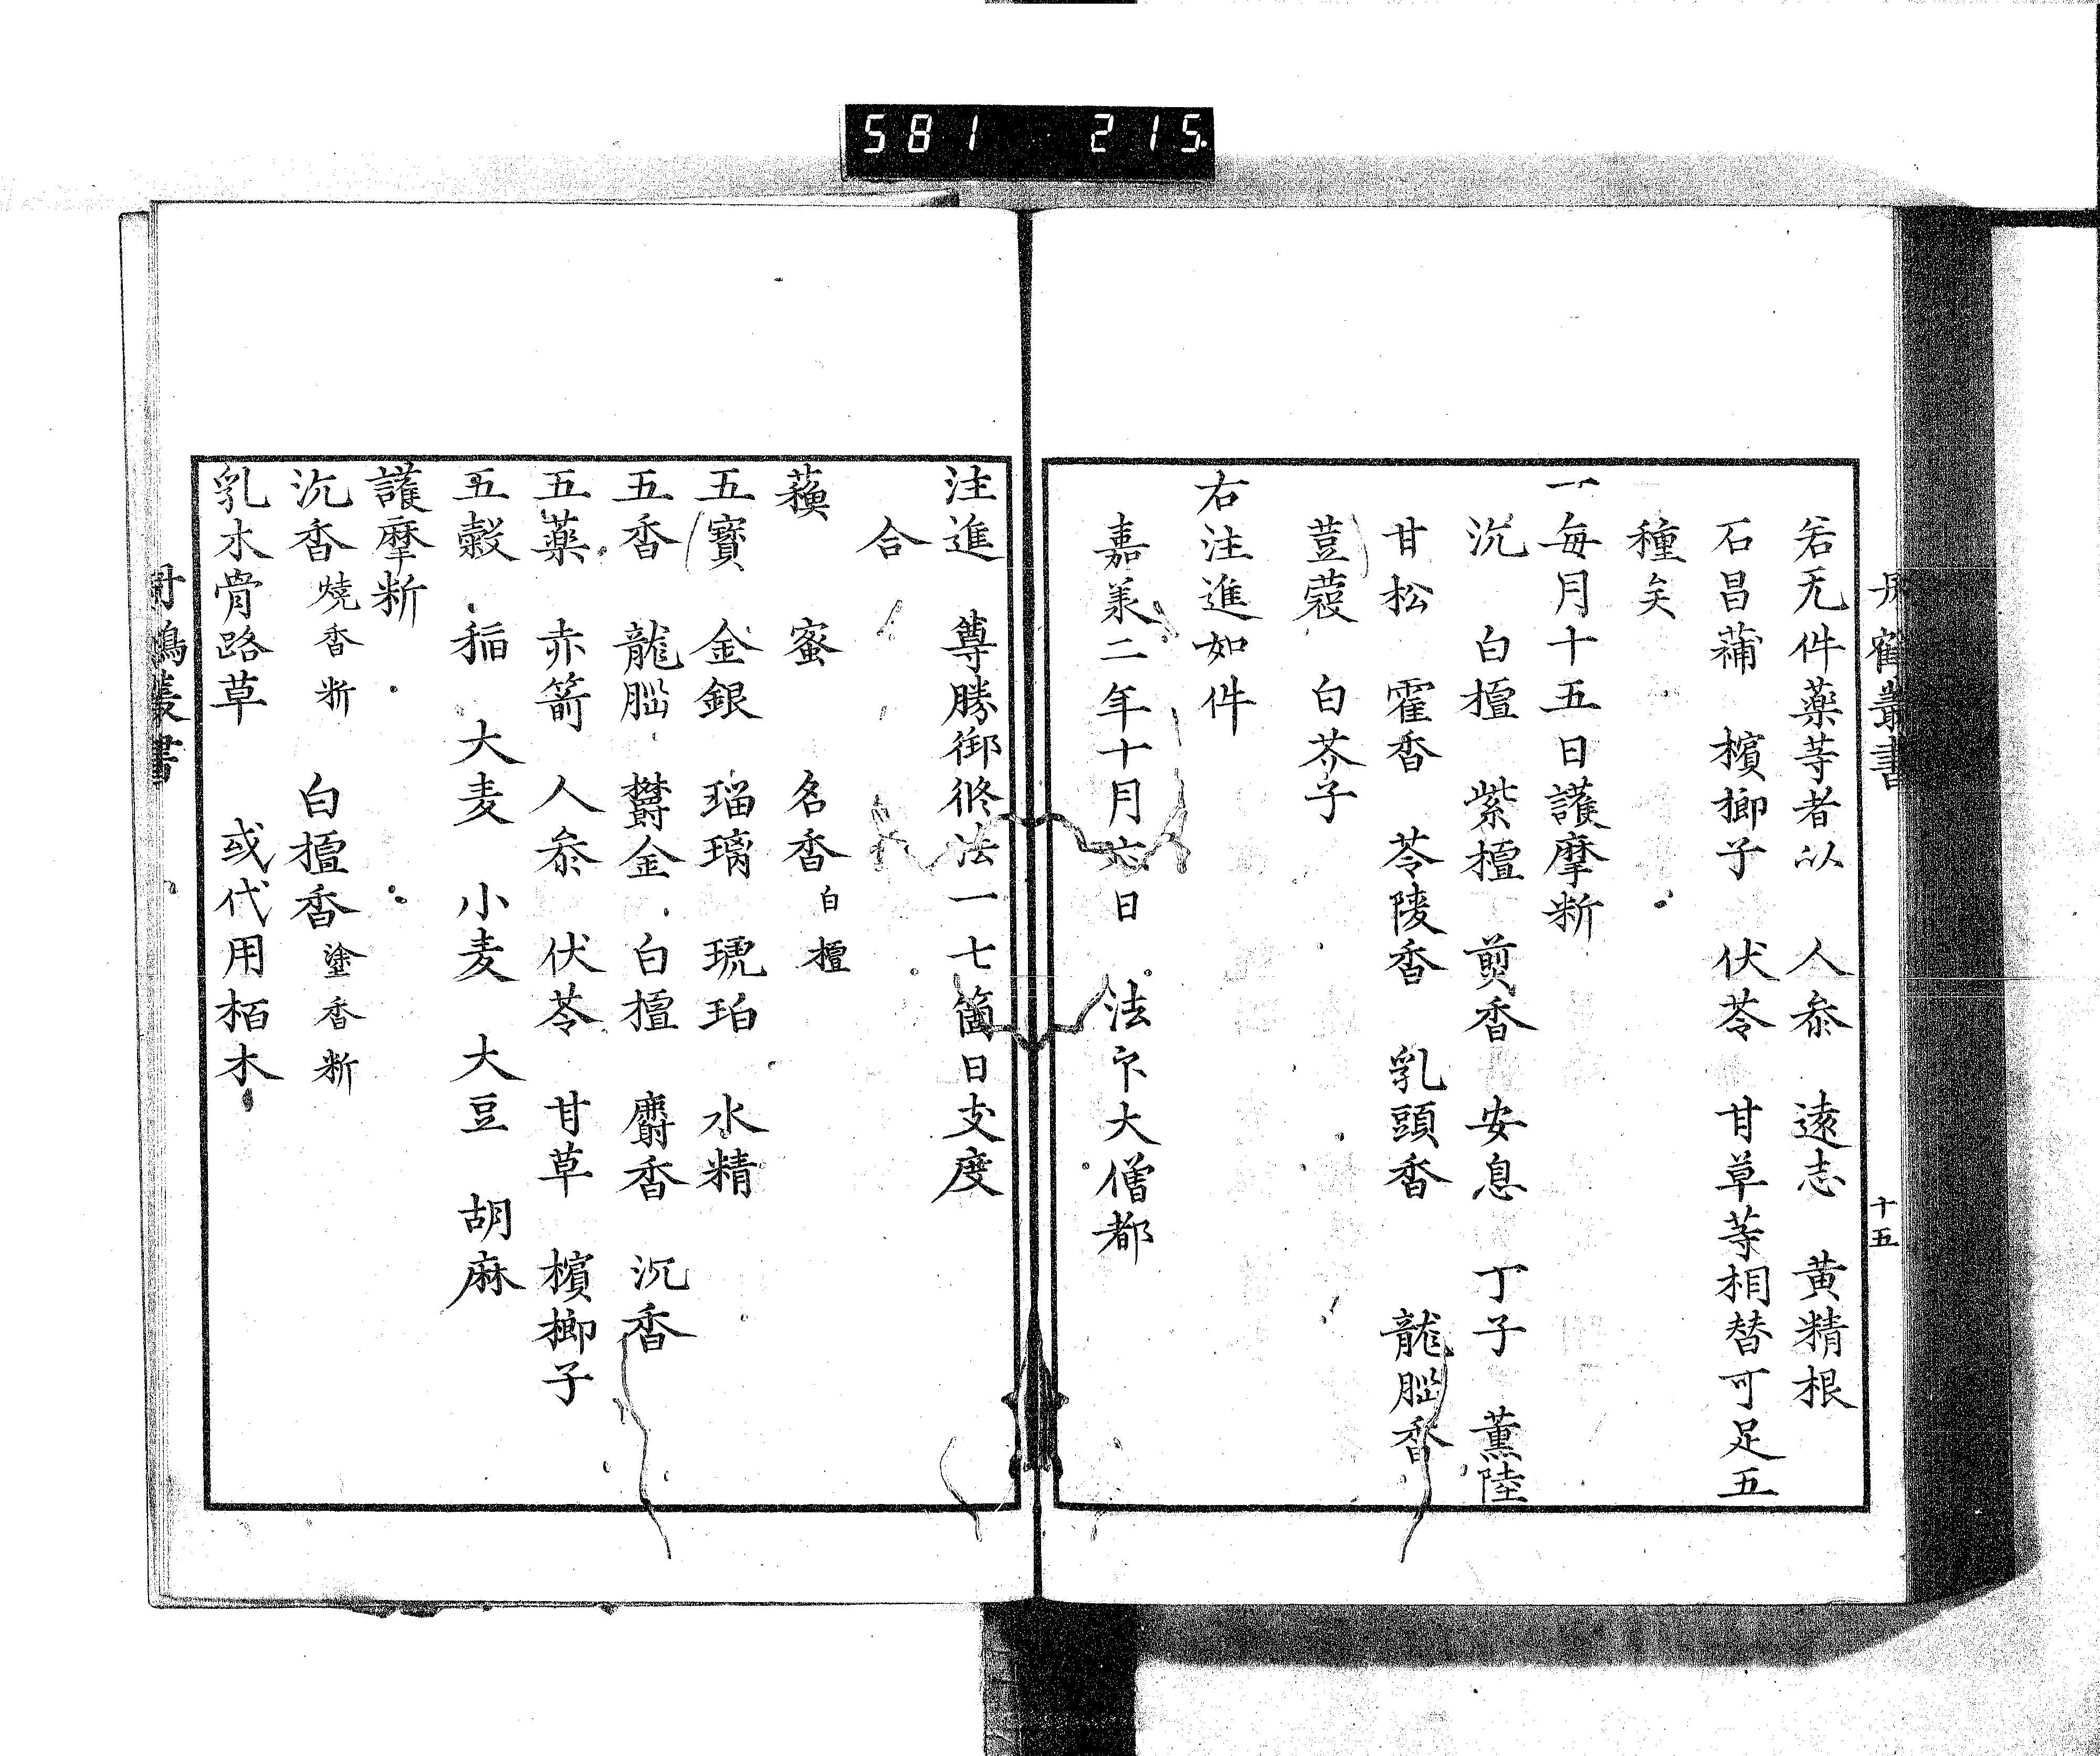 581 215
丹鶴叢書
十五
若无件薬等者以 人参 遠志 黄精根
石昌蒲 檳榔子 伏苓 甘草等相替可足五
種矣
一毎月十五日護摩断
沉 白檀 紫檀 煎香 安息 丁子 薫陸
甘松 霍香 苓陵香 乳頭香 龍脳香
荳蔲 白芥子
右注進如件
嘉承二年十月六日 法卞大僧都
注進 尊勝御修法一七箇日支度
合
蘓 蜜 名香白檀
五寳 金銀 瑠璃 琥珀 水精
五香 龍脳 欝金 白檀 麝香 沉香
五薬 赤箭 人参 伏苓 甘草 檳榔子
五穀 稲 大麦 小麦 大豆 胡麻
護摩断
沉香燒香断 白檀香塗香断
乳水骨路草 或代用栢木
丹鶴叢書